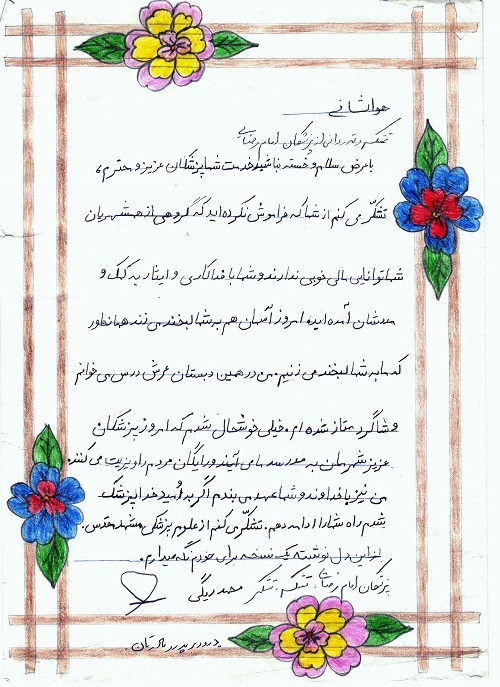 هوالشافی
تشکر و قدردانی از پزشکان امام رضایی
با عرض سلام و خسته نباشید خدمت شما پزشکان عزیز و محترم،
تشکّر می کنم از شما که فراموش نکرده اید که گروهی از همشهریان
شما توانایی مالی خوبی ندارند و شما با فداکاری و ایثار به کمک و
مددشان آمده اید. امروز آسمان هم به شما لبخند می زند همانطور
که ما به شما لبخند می زنیم. من در همین دبستان عرش درس می خوانم
و شاگرد ممتاز شده ام. خیلی خوشحال شدم که امروز پزشکان
عزیز شهرمان به مدرسه ما می آیند و رایگان مردم را ویزیت می کنند.
من نیز با خداوند و شما عهد می بندم اگر به امید خدا پزشک
بشدم راه شما را ادامه دهم. تشکّر می کنم از علوم پزشکی مشهد مقدس.
از این دل نوشته یک نسخه برای خودم نگه میدارم.
پزشکان امام رضایی، تشکر، تشکر محمد ریگی
درود بر پدر و مادرتان.